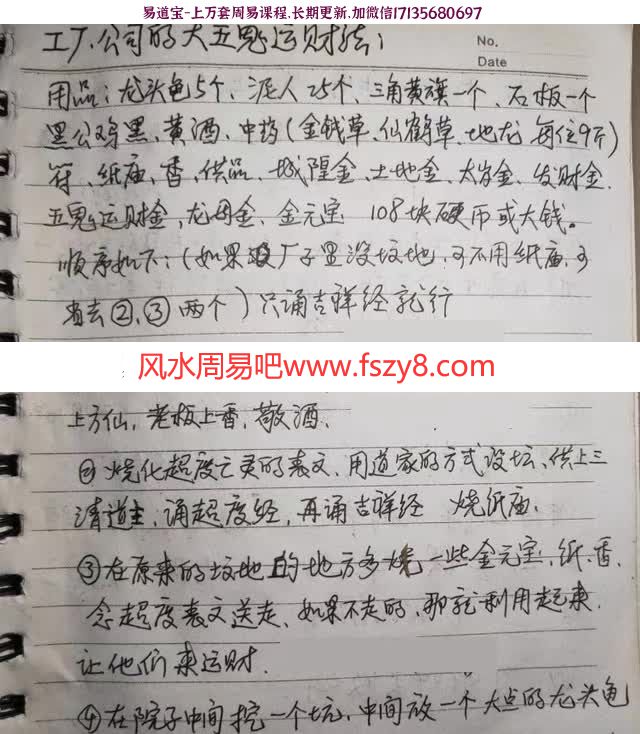 易道宝-上万套周易课程.长期更新.加微信17135680697
工厂.公司的大五鬼运财法:
No.
Date
用品:龙头龟5个、泥人25个、三角黄旗一个、石板一个
黑公鸡黑、黄酒、中药(金钱草、仙鹤草、地龙 每位9斤)
符、纸庙、香、供品、城隍金、土地金、太岁金、发财金.
五鬼运财金,龙母金、金元宝 108块硬币或大钱。
顺序如下:(如果厂子里没坟地,可不用纸庙,可
省去②、③两个)只诵吉祥经就行
风水周易吧www.fszy8.com
上方仙,老板上香,敬酒、
②烧化超度亡灵的表文,用道家的方式设坛、供上三
清道主,诵超度经,再诵吉祥经 烧纸庙.
③在原来的坟地的地方多烧一些金元宝,纸.香.
念超度表文送走、如果不走的,那就利用起来.
让他们来运财.
④在院子中间挖一个坑,中间放一个大点的龙头龟